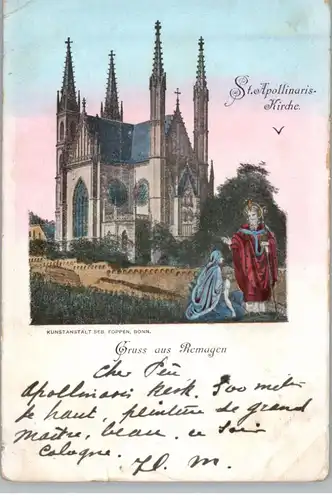 St. Apollinaris-
Kirche.
KUNSTANSTALT SEB. FOPPEN, BONN.
Gruss aus Remagen
cher
Apollinaris Kerk. 500
haut, peinture de grand
maître, beau. ce soir
Cologne.
M.